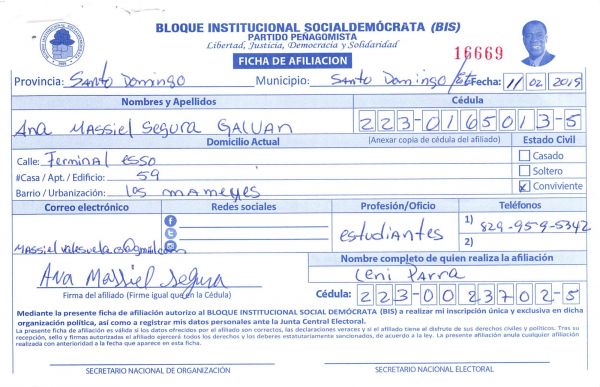 BLOQUE INSTITUCIONAL SOCIALDEMÓCRATA (BIS)
PARTIDO PEÑAGOMISTA
Libertad, Justicia, Democracia y Solidaridad
FICHA DE AFILIACION
16669
Provincia: Santo Domingo Municipio: Santo Domingo /Este Fecha: 11/02/2015
Nombres y Apellidos Cédula
Ana Massiel Segura Galvan 223-0165013-5
Domicilio Actual (Anexar copia de cédula del afiliado) Estado Civil
Calle: Terminal esso Casado
#Casa / Apt. / Edificio: 59 Soltero
Barrio / Urbanización: los mameyes x Conviviente
Correo electrónico Redes sociales Profesión/Oficio Teléfonos
Massiel @gmail.com estudiantes 1) 829-959-5342
2)
Nombre completo de quien realiza la afiliación
Ana Massiel Segura Leni Parra
Firma del afiliado (Firme igual que en la Cédula) Cédula: 223-0023702-5
Mediante la presente ficha de afiliación autorizo al BLOQUE INSTITUCIONAL SOCIAL DEMÓCRATA (BIS) a realizar mi inscripción única y exclusiva en dicha
organización política, así como a registrar mis datos personales ante la Junta Central Electoral.
La presente ficha de afiliación es valida si los datos ofrecidos por el afiliado son correctos, las declaraciones veraces y si el afiliado tiene el disfrute de sus derechos civiles y políticos. Tras su
recepción, sello y firmas autorizadas el afiliado ejercerá todos los derechos y los deberes estatutariamente sancionados, de acuerdo a la ley. La presente afiliación anula cualquier afiliación
realizada con anterioridad a la fecha que aparece en esta ficha.
SECRETARIO NACIONAL DE ORGANIZACIÓN SECRETARIO NACIONAL ELECTORAL